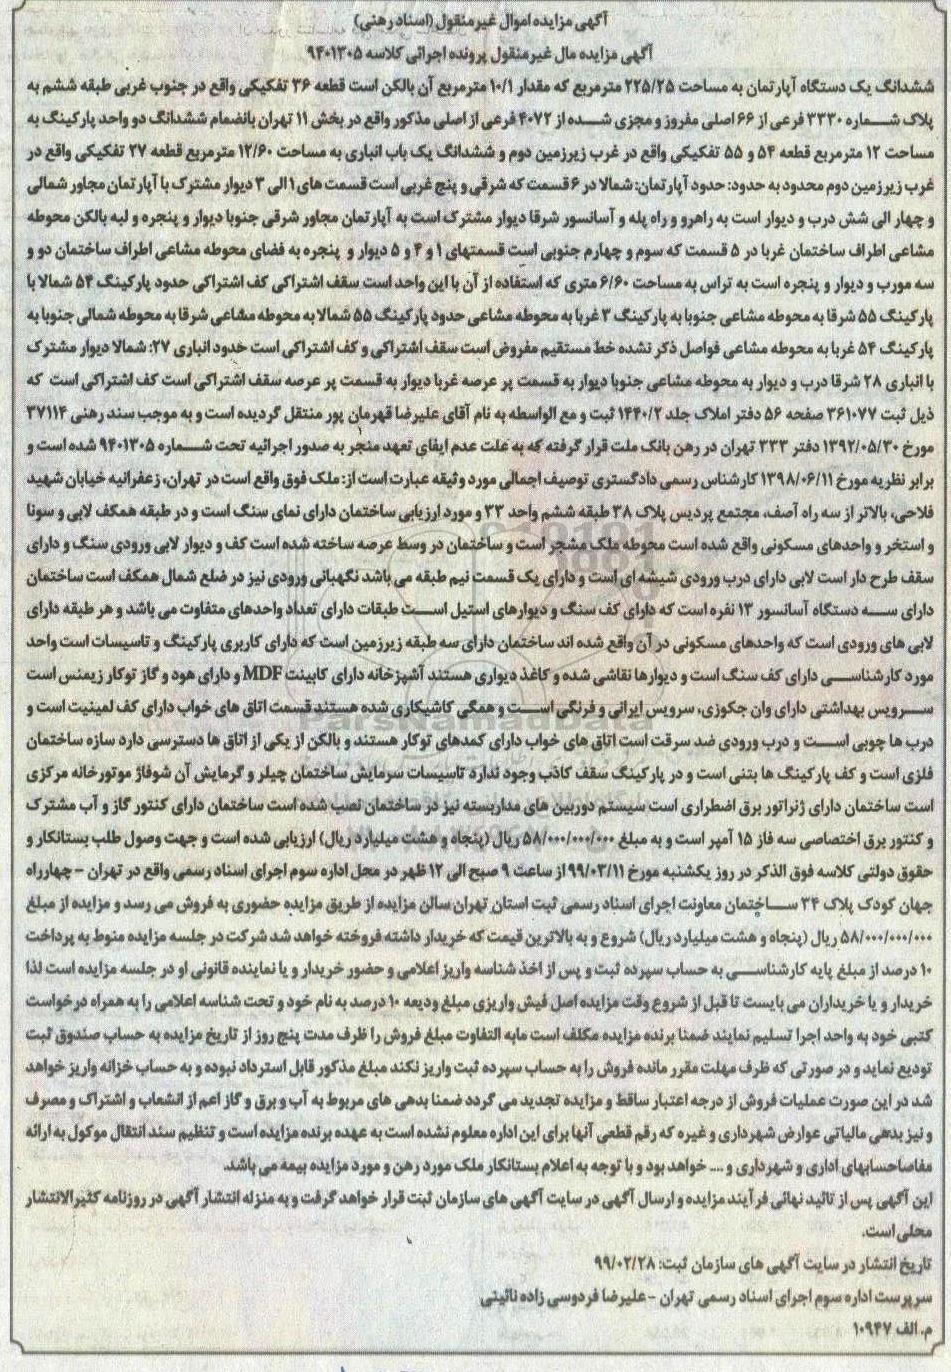 آگهی مزایده اموال غیرمنقول (اسناد رهنی)
آگهی مزایده مال غیرمنقول پرونده اجرائی کلاسه ۹۴۰۱۳۰۵
ششدانگ یک دستگاه آپارتمان به مساحت ۲۲۵/۲۵ مترمربع که مقدار ۱۰/۱ مترمربع آن بالکن است قطعه ۳۶ تفکیکی واقع در جنوب غربی طبقه ششم به
پلاک شـــماره ۳۳۳۰ فرعی از ۶۶ اصلی مفروز و مجزی شــده از ۴۰۷۲ فرعی از اصلی مذکور واقع در بخش ۱۱ تهران بانضمام ششدانگ دو واحد پارکینگ به
مساحت ۱۲ مترمربع قطعه ۵۴ و ۵۵ تفکیکی واقع در غرب زیرزمین دوم و ششدانگ یک باب انباری به مساحت ۱۲/۶۰ مترمربع قطعه ۲۷ تفکیکی واقع در
غرب زیرزمین دوم محدود به حدود: حدود آپارتمان: شمالا در ۶ قسمت که شرقی و پنج غربی است قسمت های ۱ الی ۳ دیوار مشترک با آپارتمان مجاور شمالی
و چهار الی شش درب و دیوار است به راهرو و راه پله و آسانسور شرقا دیوار مشترک است به آپارتمان مجاور شرقی جنوبا دیوار و پنجره و لبه بالکن محوطه
مشاعی اطراف ساختمان غربا در ۵ قسمت که سوم و چهارم جنوبی است قسمتهای ۱ و ۴ و ۵ دیوار و پنجره به فضای محوطه مشاعی اطراف ساختمان دو و
سه مورب و دیوار و پنجره است به تراس به مساحت ۶/۶۰ متری که استفاده از آن با این واحد است سقف اشتراکی کف اشتراکی حدود پارکینگ ۵۴ شمالا با
پارکینگ ۵۵ شرقا به محوطه مشاعی جنوبا به پارکینگ ۳ غربا به محوطه مشاعی حدود پارکینگ ۵۵ شمالا به محوطه مشاعی شرقا به محوطه شمالی جنوبا به
پارکینگ ۵۴ غربا به محوطه مشاعی فواصل ذکر نشده خط مستقیم مفروض است سقف اشتراکی و کف اشتراکی است حدود انباری ۲۷: شمالا دیوار مشترک
با انباری ۲۸ شرقا درب و دیوار به محوطه مشاعی جنوبا دیوار به قسمت پر عرصه غربا دیوار به قسمت پر عرصه سقف اشتراکی است کف اشتراکی است که
ذیل ثبت ۳۶۱۰۷۷ صفحه ۵۶ دفتر املاک جلد ۱۴۴۰/۲ ثبت و مع الواسطه به نام آقای علیرضا قهرمان پور منتقل گردیده است و به موجب سند رهنی ۳۷۱۱۴
مورخ ۱۳۹۲/۰۵/۳۰ دفتر ۳۳۳ تهران در رهن بانک ملت قرار گرفته که به علت عدم ایفای تعهد منجر به صدور اجرائیه تحت شــماره ۹۴۰۱۳۰۵ شده است و
برابر نظریه مورخ ۱۳۹۸/۰۶/۱۱ کارشناس رسمی دادگستری توصیف اجمالی مورد وثیقه عبارت است از: ملک فوق واقع است در تهران، زعفرانیه خیابان شهید
فلاحی، بالاتر از سه راه آصف، مجتمع پردیس پلاک ۳۸ طبقه ششم واحد ۳۳ و مورد ارزیابی ساختمان دارای نمای سنگ است و در طبقه همکف لابی و سونا
و استخر و واحدهای مسکونی واقع شده است محوطه ملک مشجر است و ساختمان در وسط عرصه ساخته شده است کف و دیوار لابی ورودی سنگ و دارای
سقف طرح دار است لابی دارای درب ورودی شیشه ای است و دارای یک قسمت نیم طبقه می باشد نگهبانی ورودی نیز در ضلع شمال همکف است ساختمان
دارای ســه دستگاه آسانسور ۱۳ نفره است که دارای کف سنگ و دیوارهای استیل اســت طبقات دارای تعداد واحدهای متفاوت می باشد و هر طبقه دارای
لابی های ورودی است که واحدهای مسکونی در آن واقع شده اند ساختمان دارای سه طبقه زیرزمین است که دارای کاربری پارکینگ و تاسیسات است واحد
مورد کارشناســی دارای کف سنگ است و دیوارها نقاشی شده و کاغذ دیواری هستند آشپزخانه دارای کابینت MDF و دارای هود و گاز توکار زیمنس است
ســرویس بهداشتی دارای وان جکوزی، سرویس ایرانی و فرنگی اســت و همگی کاشیکاری شده هستند قسمت اتاق های خواب دارای کف لمینیت است و
درب ها چوبی اســت و درب ورودی ضد سرقت است اتاق های خواب دارای کمدهای توکار هستند و بالکن از یکی از اتاق ها دسترسی دارد سازه ساختمان
فلزی است و کف پارکینگ ها بتنی است و در پارکینگ سقف کاذب وجود ندارد تاسیسات سرمایش ساختمان چیلر و گرمایش آن شوفاژ موتورخانه مرکزی
است ساختمان دارای ژنراتور برق اضطراری است سیستم دوربین های مداربسته نیز در ساختمان نصب شده است ساختمان دارای کنتور گاز و آب مشترک
و کنتور برق اختصاصی سه فاز ۱۵ آمپر است و به مبلغ ۵۸/۰۰۰/۰۰۰/۰۰۰ ریال (پنجاه و هشت میلیارد ریال) ارزیابی شده است و جهت وصول طلب بستانکار و
حقوق دولتی کلاسه فوق الذکر در روز یکشنبه مورخ ۹۹/۰۳/۱۱ از ساعت ۹ صبح الی ۱۲ ظهر در محل اداره سوم اجرای اسناد رسمی واقع در تهران – چهارراه
جهان کودک پلاک ۳۴ ســاختمان معاونت اجرای اسناد رسمی ثبت استان تهران سالن مزایده از طریق مزایده حضوری به فروش می رسد و مزایده از مبلغ
۵۸/۰۰۰/۰۰۰/۰۰۰ ریال (پنجاه و هشت میلیارد ریال) شروع و به بالاترین قیمت که خریدار داشته فروخته خواهد شد شرکت در جلسه مزایده منوط به پرداخت
۱۰ درصد از مبلغ پایه کارشناســی به حساب سپرده ثبت و پس از اخذ شناسه واریز اعلامی و حضور خریدار و یا نماینده قانونی او در جلسه مزایده است لذا
خریدار و یا خریداران می بایست تا قبل از شروع وقت مزایده اصل فیش واریزی مبلغ ودیعه ۱۰ درصد به نام خود و تحت شناسه اعلامی را به همراه درخواست
کتبی خود به واحد اجرا تسلیم نمایند ضمنا برنده مزایده مکلف است مابه التفاوت مبلغ فروش را ظرف مدت پنج روز از تاریخ مزایده به حساب صندوق ثبت
تودیع نماید و در صورتی که ظرف مهلت مقرر مانده فروش را به حساب سپرده ثبت واریز نکند مبلغ مذکور قابل استرداد نبوده و به حساب خزانه واریز خواهد
شد در این صورت عملیات فروش از درجه اعتبار ساقط و مزایده تجدید می گردد ضمنا بدهی های مربوط به آب و برق و گاز اعم از انشعاب و اشتراک و مصرف
و نیز بدهی مالیاتی عوارض شهرداری و غیره که رقم قطعی آنها برای این اداره معلوم نشده است به عهده برنده مزایده است و تنظیم سند انتقال موکول به ارائه
مفاصاحسابهای اداری و شهرداری و .... خواهد بود و با توجه به اعلام بستانکار ملک مورد رهن و مورد مزایده بیمه می باشد.
این آگهی پس از تائید نهائی فرآیند مزایده و ارسال آگهی در سایت آگهی های سازمان ثبت قرار خواهد گرفت و به منزله انتشار آگهی در روزنامه کثیرالانتشار
محلی است.
تاریخ انتشار در سایت آگهی های سازمان ثبت: ۹۹/۰۲/۲۸
سرپرست اداره سوم اجرای اسناد رسمی تهران – علیرضا فردوسی زاده نائینی
م. الف ۱۰۹۴۷